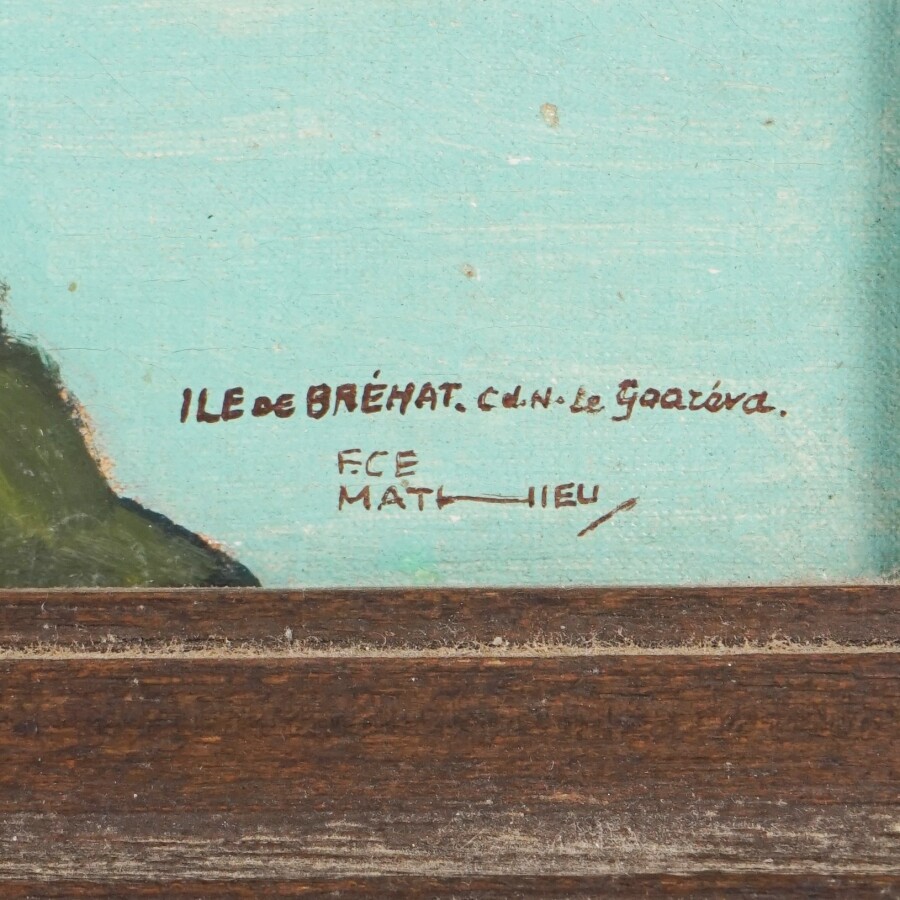 ILE DE BRÉHAT. C d.N. Le Goaréva.
F.CE
MATHIEU